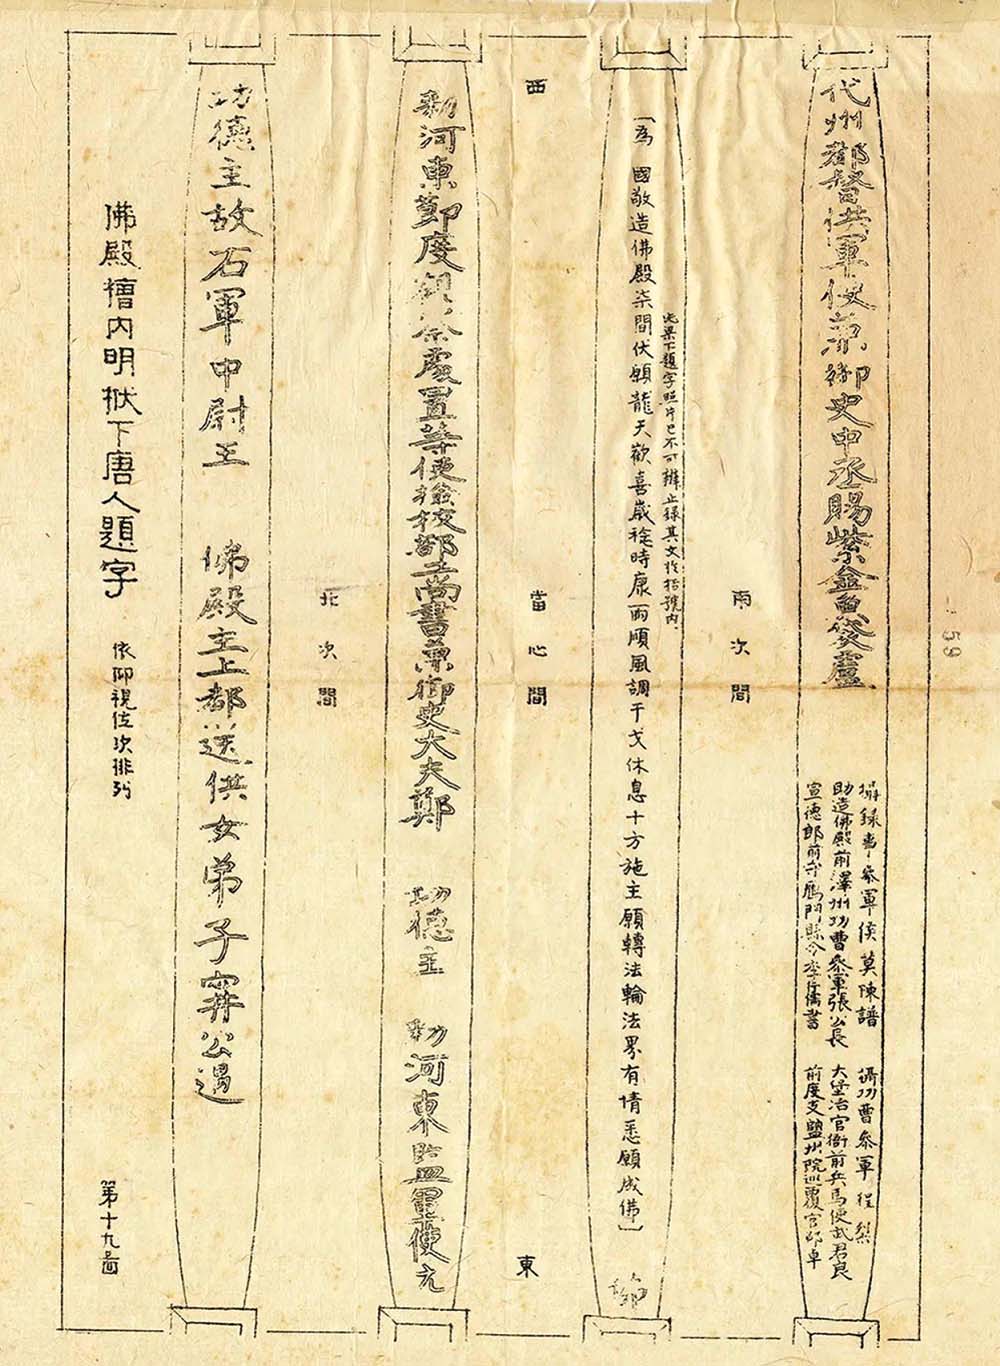 代州都督供軍使兼御史中丞賜紫金魚袋盧
攝錄事參軍侯莫陳譜
助造佛殿前澤州功曹參軍張公長
宣德郎前守鴈門縣令李行儒書
攝功曹參軍程
大堡冶官衙前兵馬使武君良
前度支鹽州院巡覆官邵卓
南次間
此梁下題字照片已不可辨止錄其文於括號內
〔為 國敬造佛殿柒間伏願龍天歡喜歲稔時康雨順風調干戈休息十方施主願轉法輪法界有情悉願成佛〕
西
當心間
東
勅河東節度觀察處置等使撿挍部工尚書兼御史大夫鄭
功德主
勅河東監軍使元
北次間
功德主故右軍中尉王
佛殿主上都送供女弟子甯公遇
佛殿槽內明栿下唐人題字
依仰視位次排列
第十九圖
59